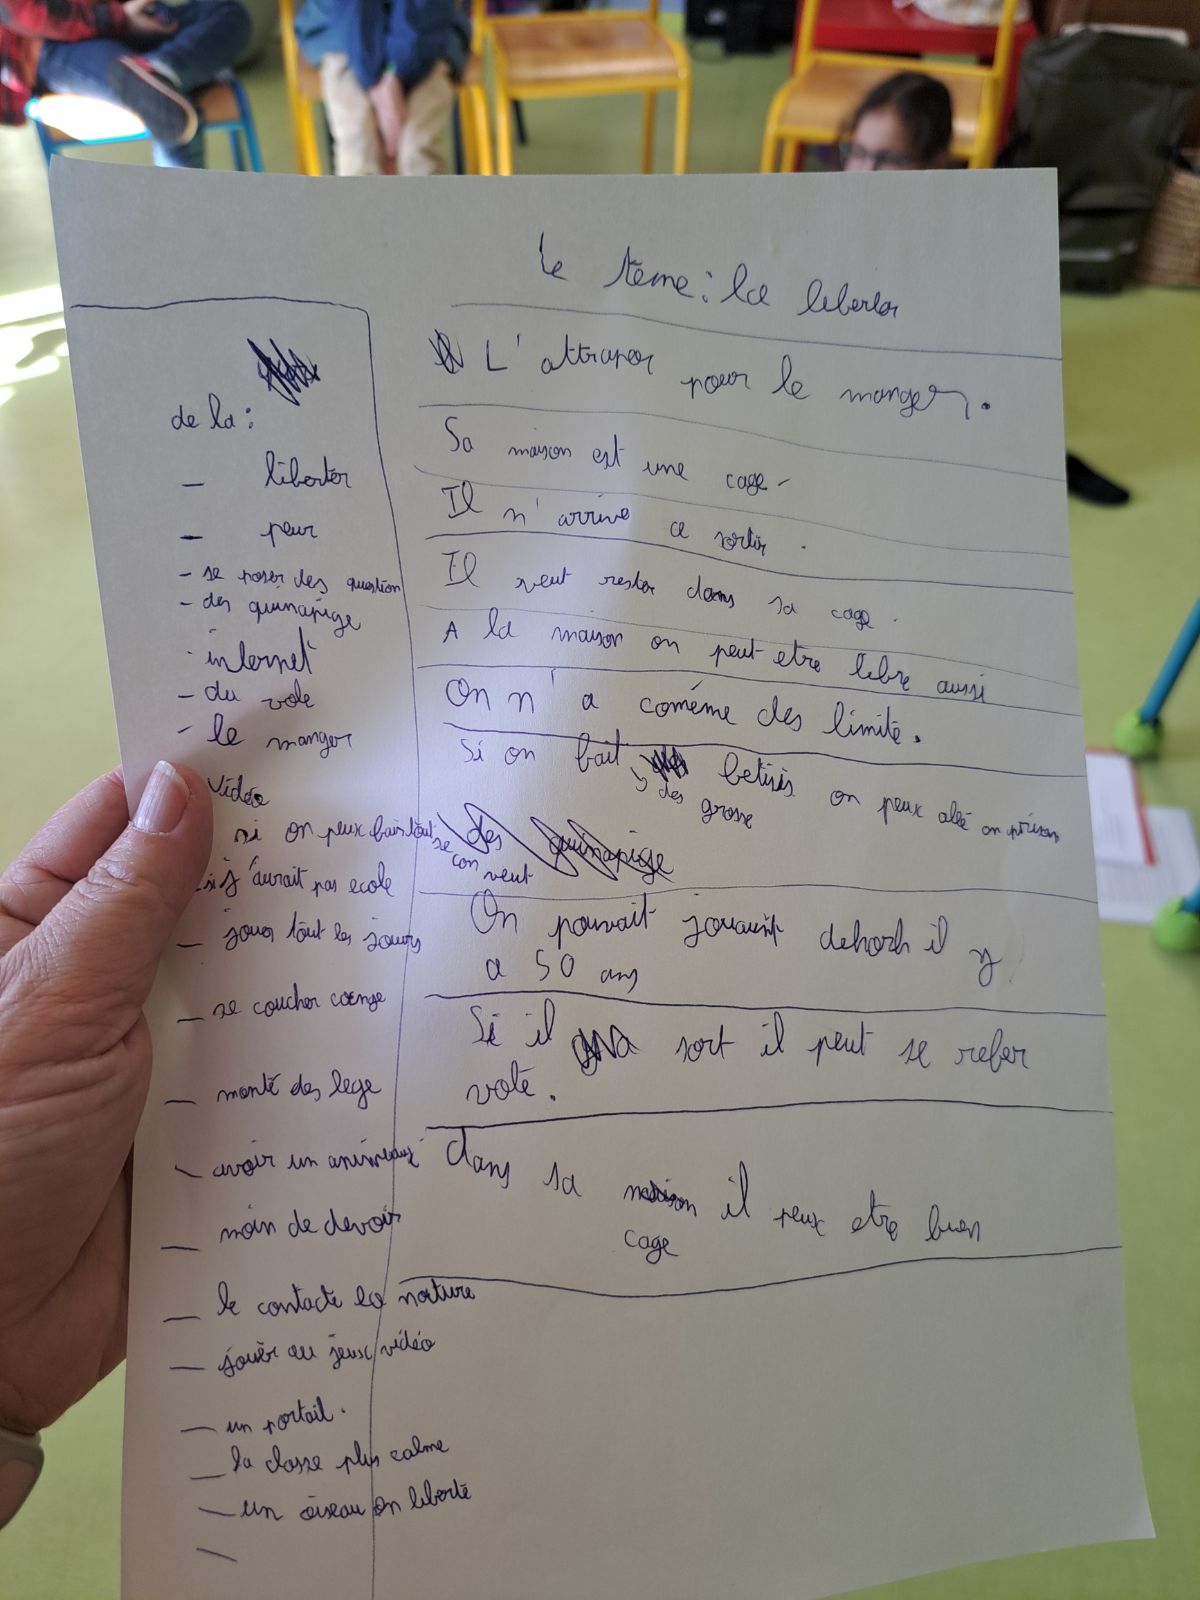 Le tème : la liberter
de la :
- liberter
- peur
- se poser des question
- des quinapige
internet
- du vole
- le manger
vidéo
si on peux fair tout se con veut
si j'aurait pas ecole
- jouer tout les jours
- se coucher
- monté des lege
- avoir un animeaux
- moin de devoir
- le contacte la nature
- jouèr au jeux vidéo
- un portail.
- la classe plus calme
- un oiseau en liberté
-
L'attraper pour le manger.
Sa maison est une cage.
Il n'arrive a sortir.
Il veut rester dans sa cage.
A la maison on peut etre libre aussi
On n'a coméme des limite.
Si on fait des grosse betisis on peux allé en prison
On pouvait jouaint dehorh il y
a 50 ans
Si il sort il peut se refer
volé.
dans sa cage il peux etre bien